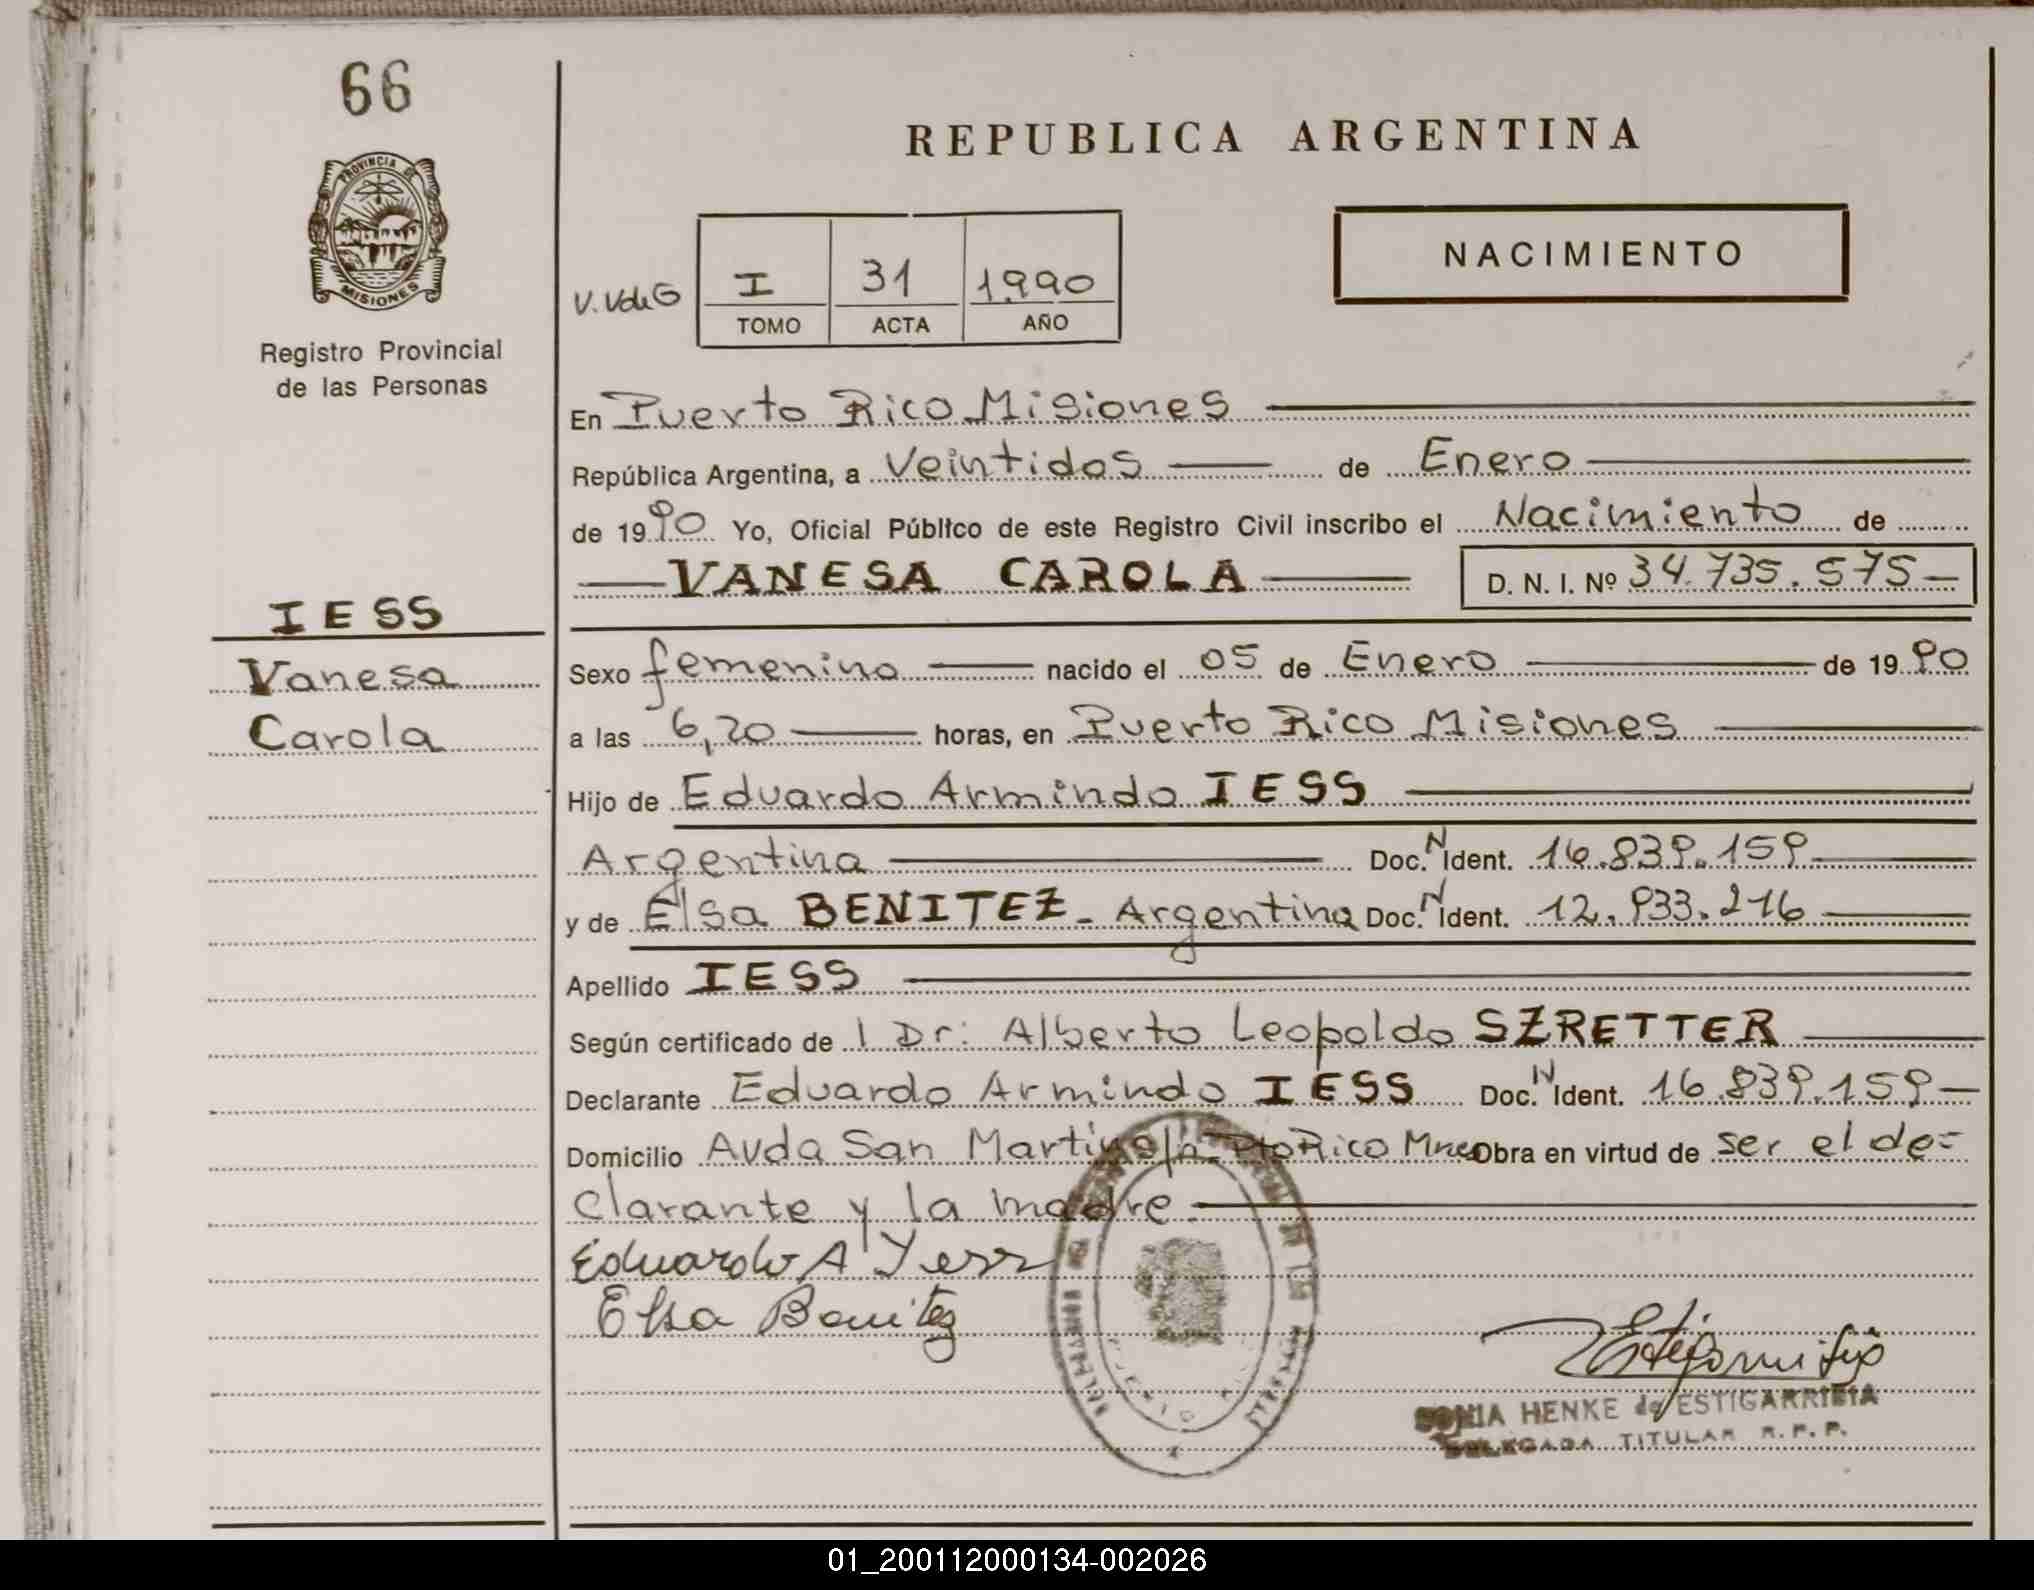 66
PROVINCIA DE
MISIONES
Registro Provincial
de las Personas
IESS
Vanesa
Carola
REPUBLICA ARGENTINA
NACIMIENTO
V.VdeG
I 31 1990
TOMO ACTA AÑO
En Puerto Rico Misiones
República Argentina, a Veintidos de Enero
de 1990 Yo, Oficial Público de este Registro Civil inscribo el Nacimiento de
VANESA CAROLA D. N. I. Nº 34.735.575
Sexo femenino nacido el 05 de Enero de 1990
a las 6,20 horas, en Puerto Rico Misiones
Hijo de Eduardo Armindo IESS
Argentina Doc. N Ident. 16.839.159
y de Elsa BENITEZ - Argentina Doc. N Ident. 12.933.216
Apellido IESS
Según certificado de l Dr: Alberto Leopoldo SZRETTER
Declarante Eduardo Armindo IESS Doc. N Ident. 16.839.159
Domicilio Avda San Martin s/n - Pto Rico Mnes Obra en virtud de ser el de=
clarante y la madre.
Eduardo A Yess
Elsa Benitez
SONIA HENKE de ESTIGARRIBIA
DELEGADA TITULAR R. P. P.
01_200112000134-002026